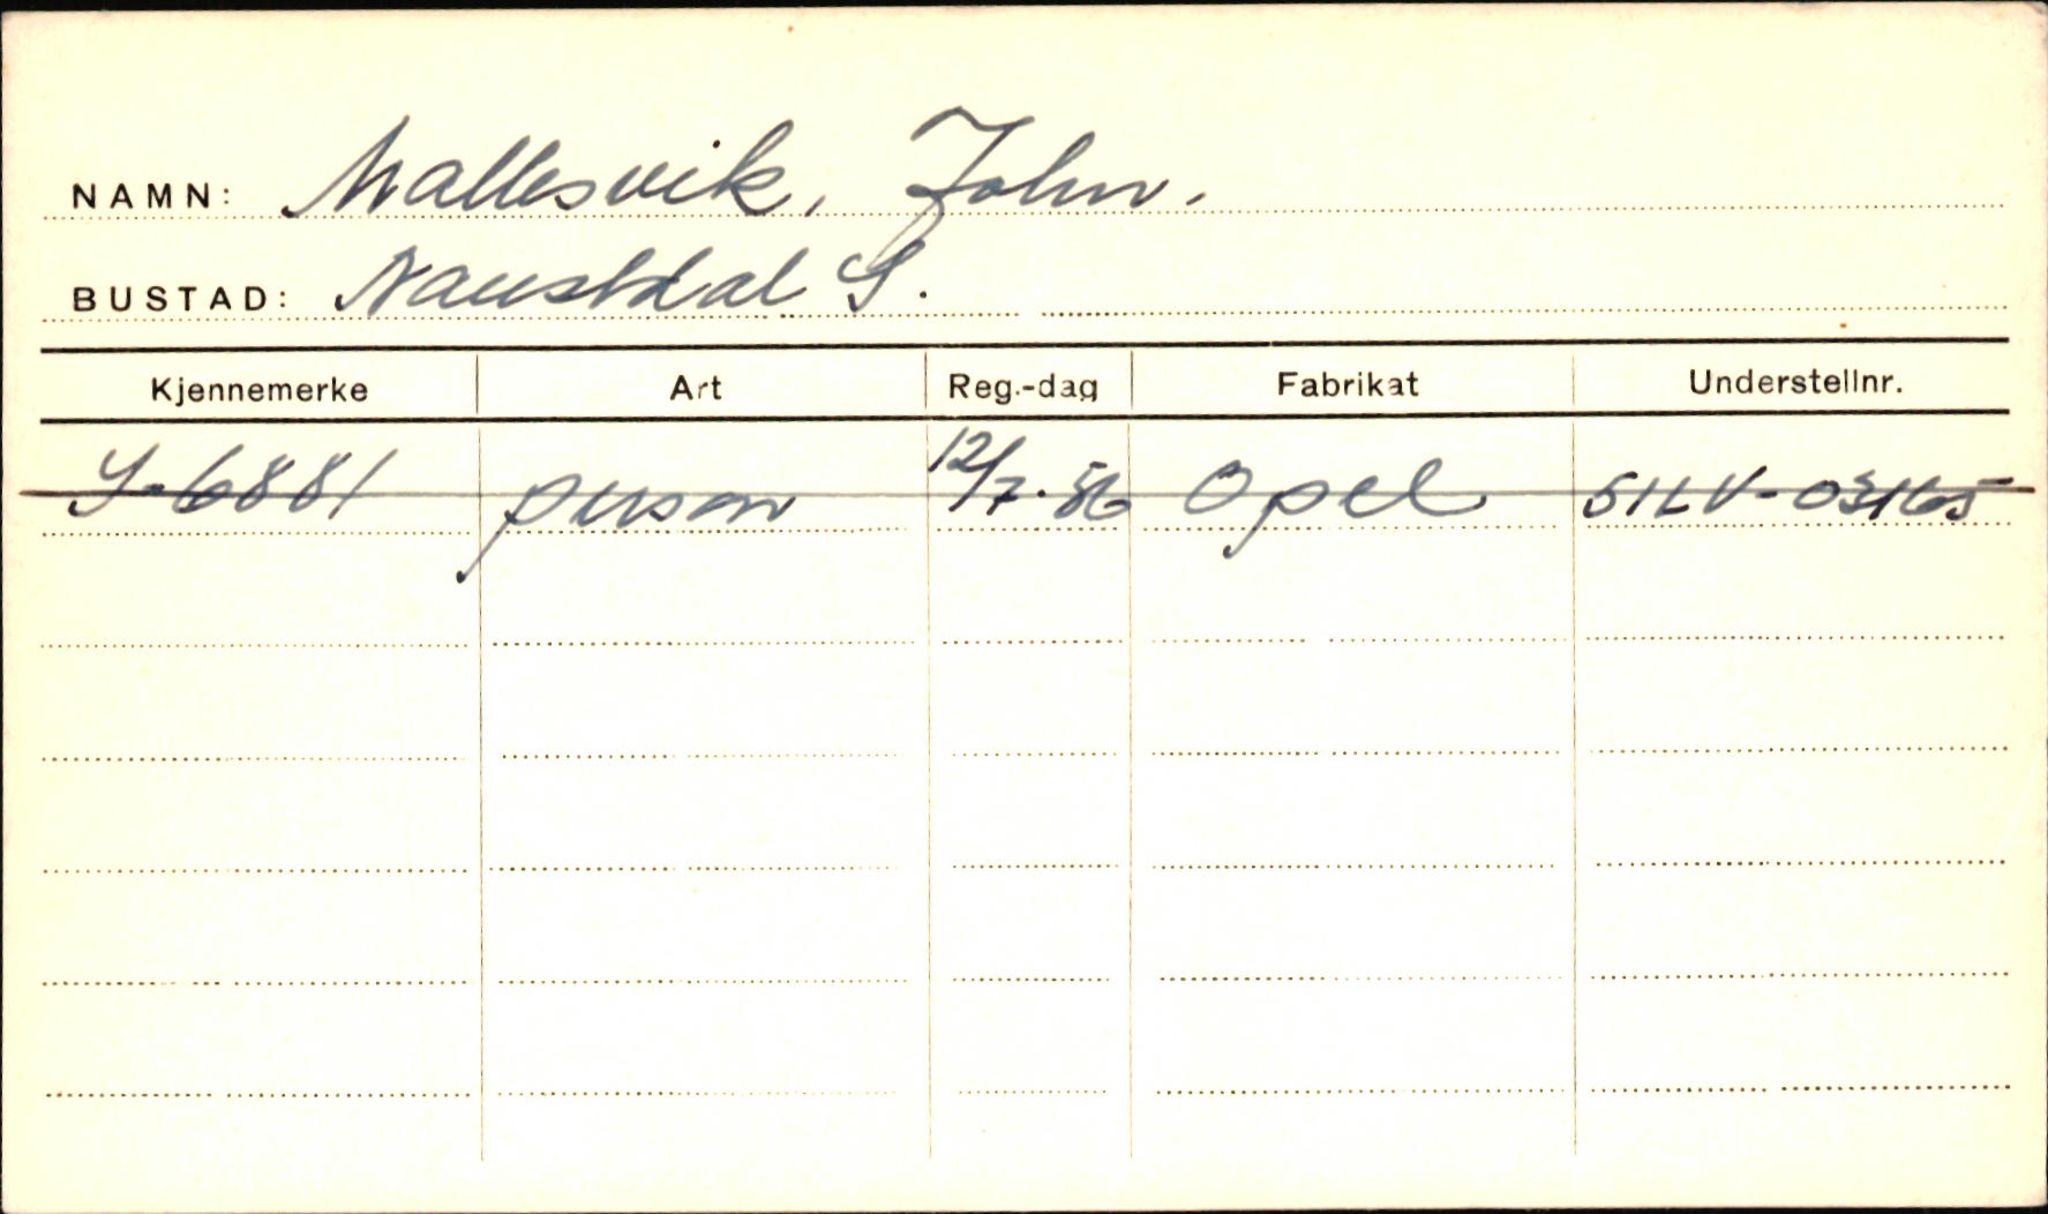 NAMN: Mallesvik, John.
BUSTAD: Naustdal S.
Kjennemerke Art Reg.-dag Fabrikat Understellnr.
S-6881 person 12/7-56 Opel 51LV-03165